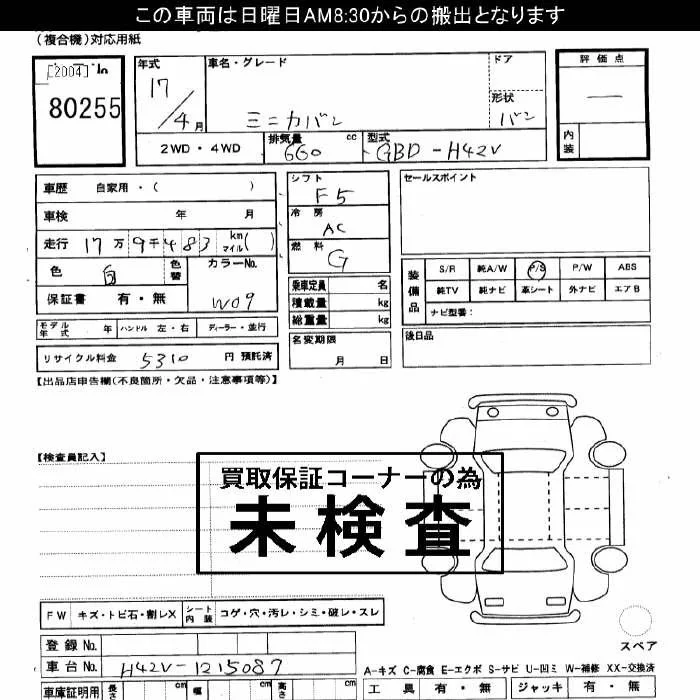 この車両は日曜日AM8:30からの搬出となります
(複合機)対応用紙
[2004]
80255
年式 車名・グレード ドア 評価点
17/4月 ミニカバン 形状 バン
内装
2WD・4WD 排気量 660 cc 型式 GBD-H42V
車歴 自家用・( )
シフト F5
セールスポイント
車検 年 月
冷房 AC
走行 17万9千483 km マイル( )
燃料 G
色 白 色替 カラーNo. W09
保証書 有・無
装備品 S/R 純A/W P/S P/W ABS
純TV 純ナビ 革シート 外ナビ エアB
ナビ型番:
乗車定員 名
積載量 kg
総重量 kg
モデル年式 年 ハンドル 左・右 ディーラー・並行
名変期限 月 日
後日品
リサイクル料金 5310 円 預託済
【出品店申告欄(不良箇所・欠品・注意事項等)】
【検査員記入】
買取保証コーナーの為
未検査
FW キズ・トビ石・割レX シート内装 コゲ・穴・汚レ・シミ・破レ・スレ
スペア
登録No.
車台No. H42V-1215087
A-キズ C-腐食 E-エクボ S-サビ U-凹ミ W-補修 XX-交換済
車庫証明用 長さ cm 幅 cm 高さ cm
工具 有・無 ジャッキ 有・無